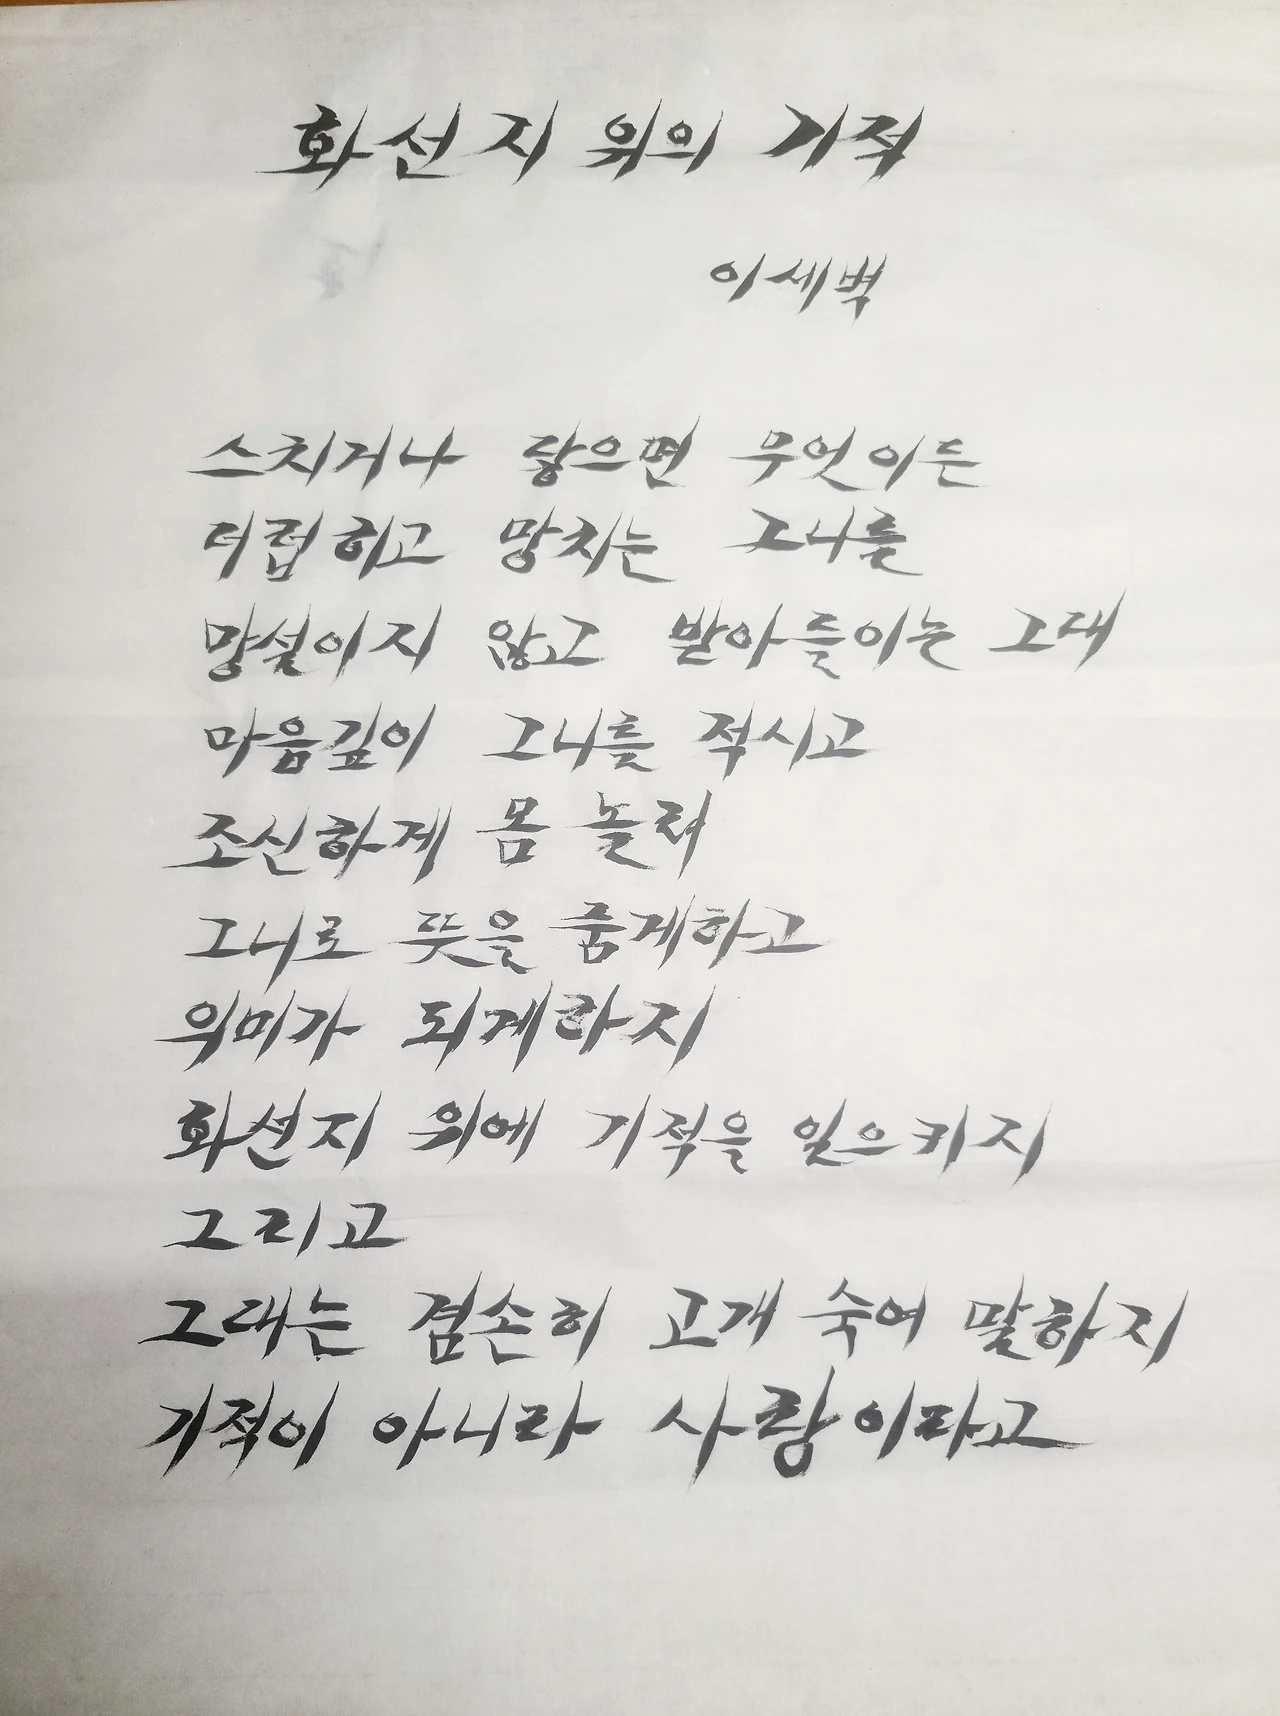 화선지 위의 기적
이세벽
스치거나 닿으면 무엇이든
더럽히고 망치는 그니를
망설이지 않고 받아들이는 그대
마음깊이 그니를 적시고
조신하게 몸 놀려
그니로 뜻을 품게하고
의미가 되게하지
화선지 위에 기적을 잊으키지
그리고
그대는 겸손히 고개 숙여 말하지
기적이 아니라 사랑이라고